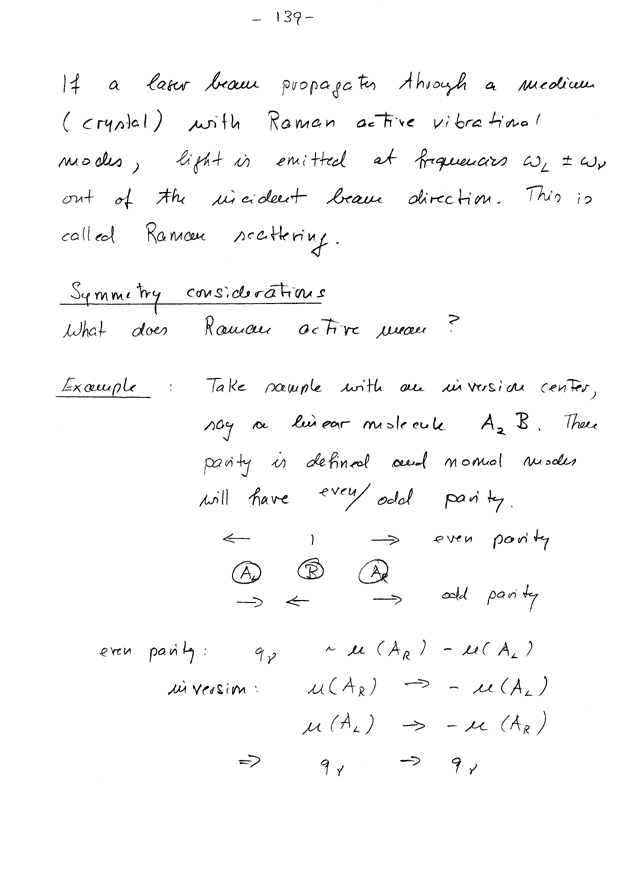 - 139 -
If a laser beam propagates through a medium
(crystal) with Raman active vibrational
modes, light is emitted at frequencies ω_L ± ω_ν
out of the incident beam direction. This is
called Raman scattering.
Symmetry considerations
What does Raman active mean?
Example : Take sample with an inversion center,
say a linear molecule A₂ B. Then
parity is defined and normal modes
will have even/odd parity.
← | → even parity
A_L B A_R
→ ← → odd parity
even parity: q_ν ~ u(A_R) - u(A_L)
inversion: u(A_R) → - u(A_L)
u(A_L) → - u(A_R)
⇒ q_ν → q_ν